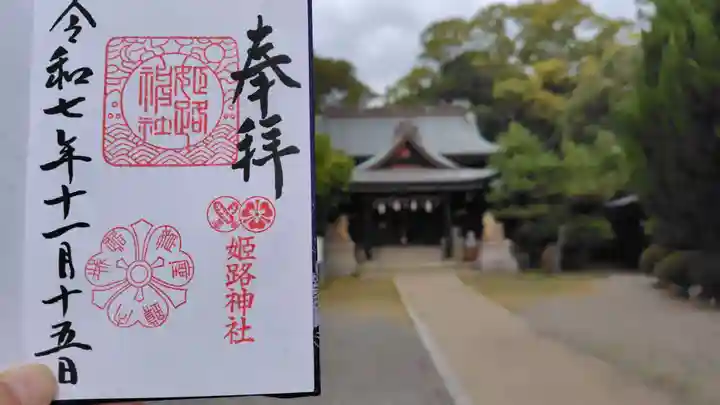 奉拝
姫路神社
姫路神社
令和七年十一月十五日